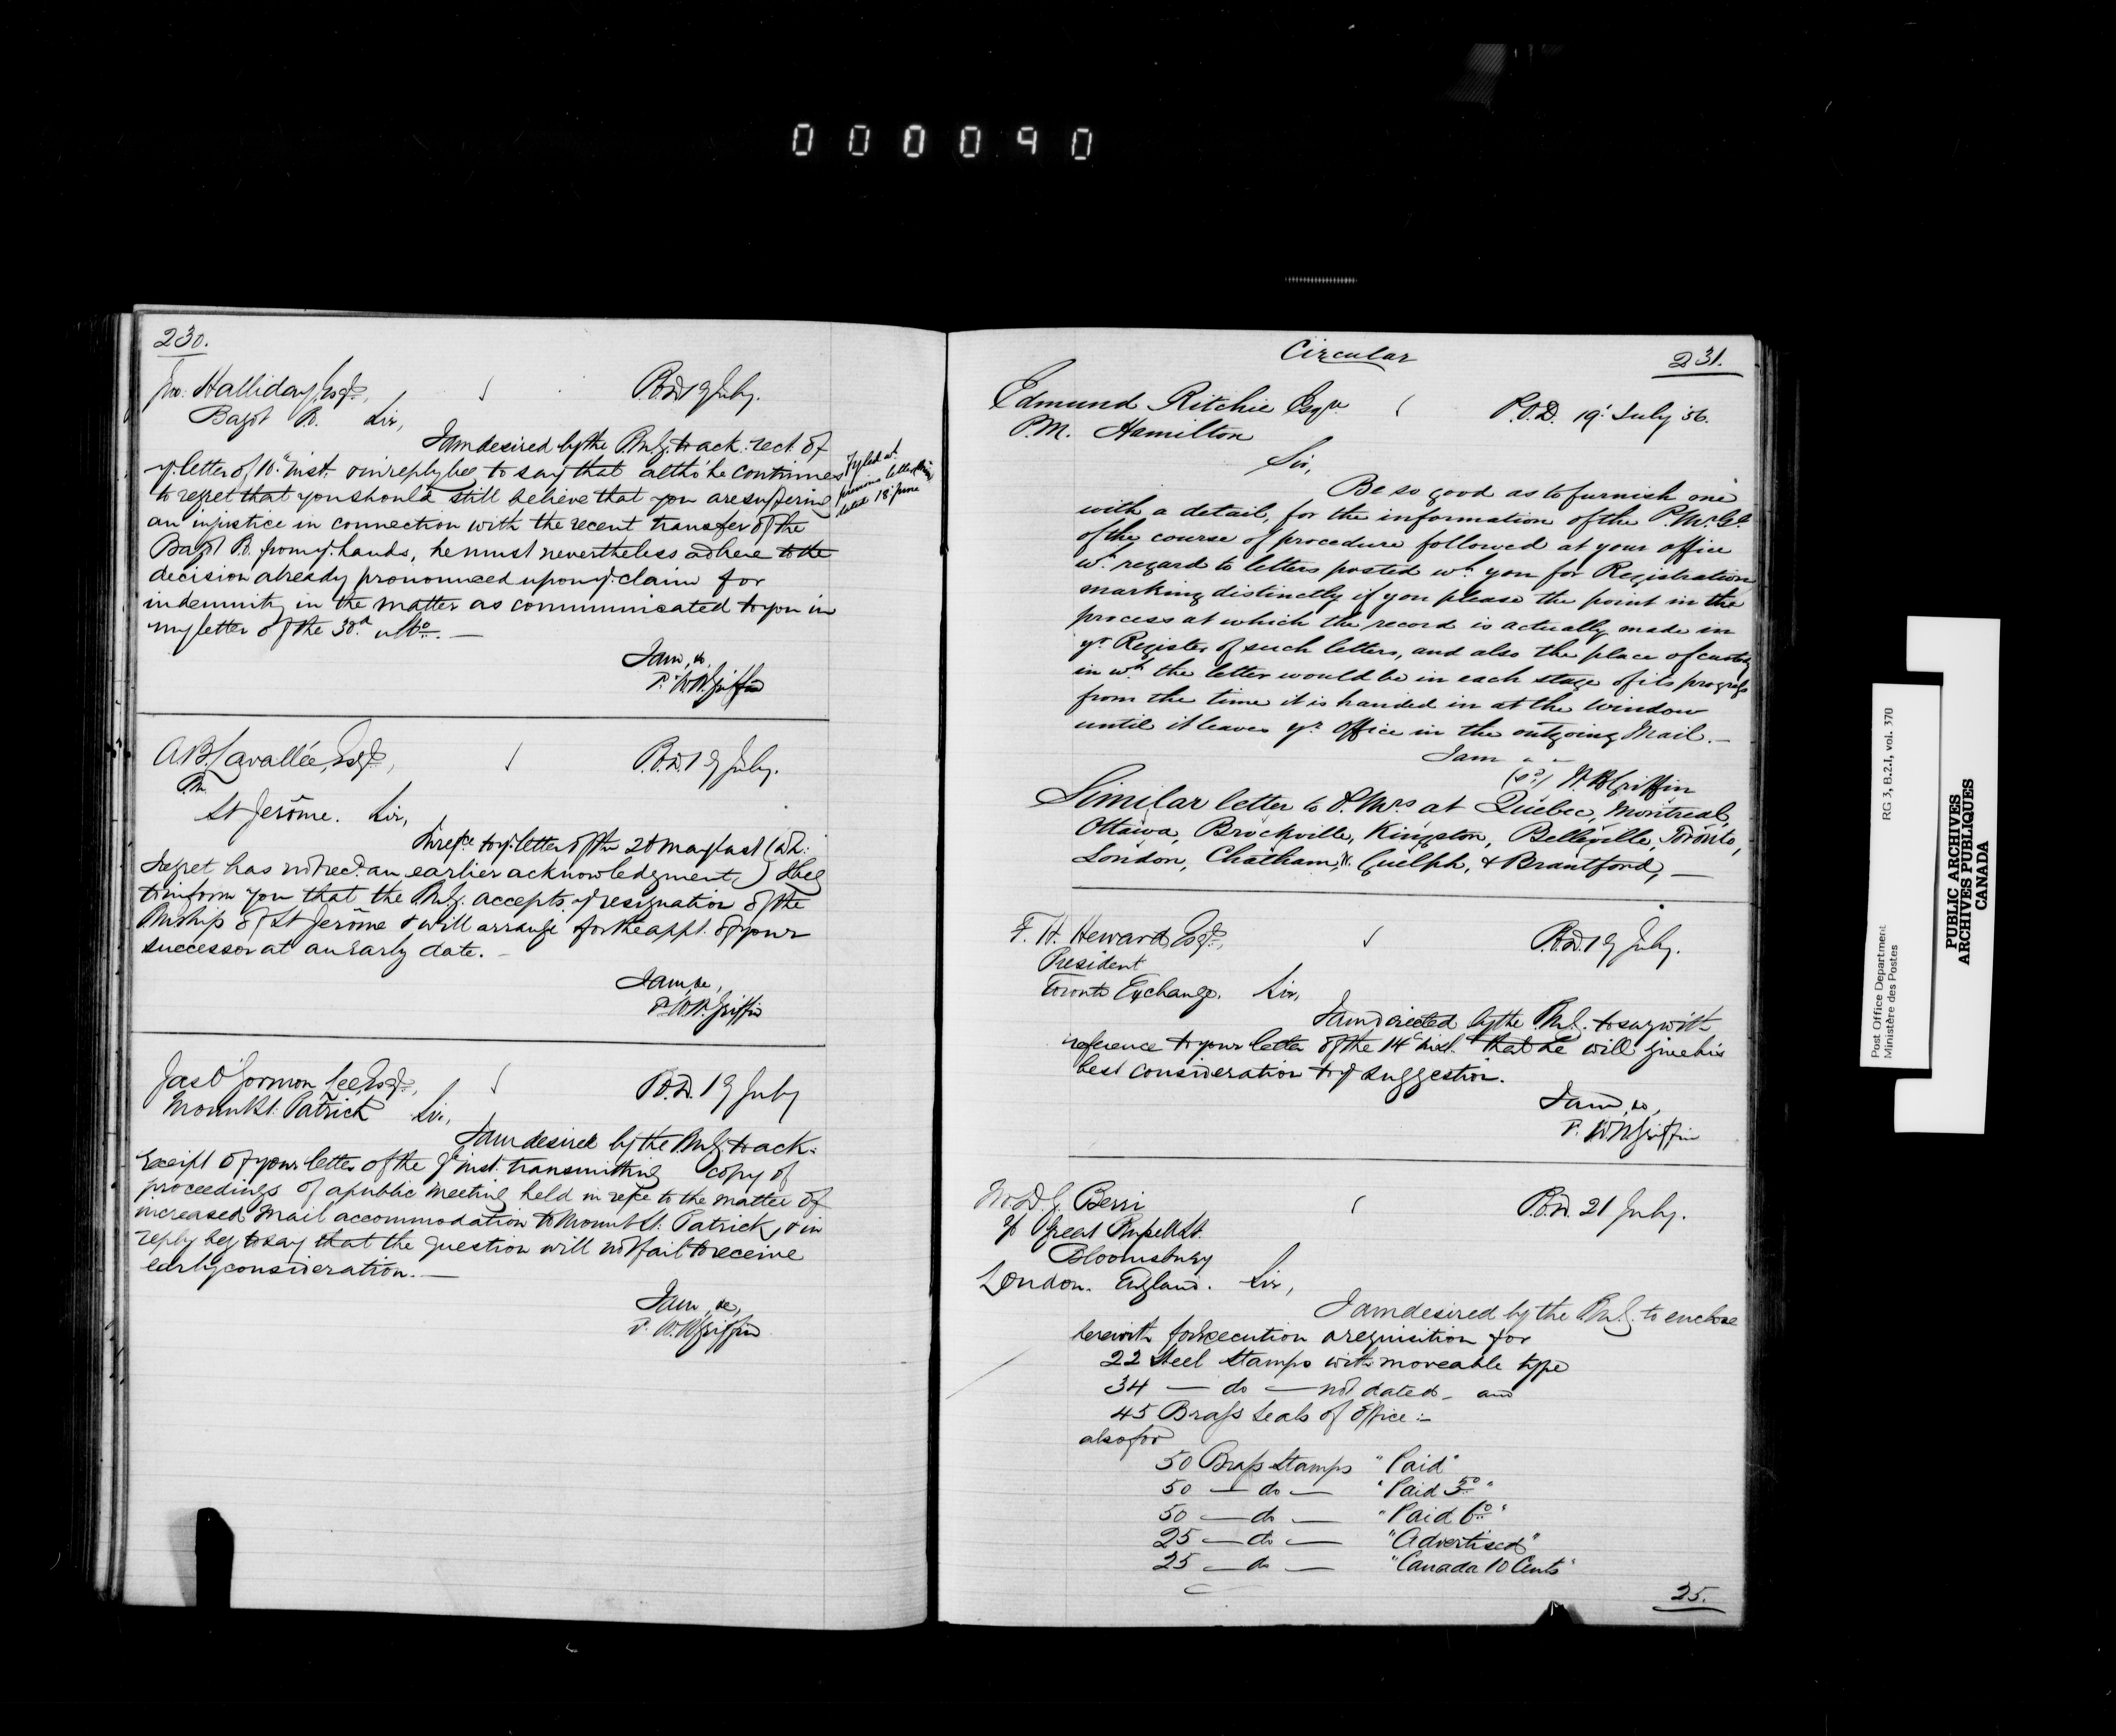 000090
230.
Jno. Halliday, Esqr, P.O.D. 19 July.
Bagot P.O. Sir,
I am desired by the P.M.G. to ack: rect. of
yr. letter of 10th inst. & in reply beg to say that altho' he continues
to regret that you should still believe that you are suffering
an injustice in connection with the recent transfer of the
Bagot P.O. from yr. hands, he must nevertheless adhere to the
decision already pronounced upon yr. claim for
indemnity in the matter as communicated to you in
my letter of the 30th ulto. —
Fyled at
previous letter
dated 18 June
I am, &c.
W.H. Griffin
A.B. Lavallée, Esqr, P.O.D. 19 July.
P.M.
St Jerôme. Sir,
In refce to yr. letter of the 28 May last (wh:
I regret has not recd. an earlier acknowledgment,) I beg
to inform you that the P.M.G. accepts yr resignation of the
P.Mship of St Jerôme & will arrange for the appt. of your
successor at an early date. —
I am, &c,
W.H. Griffin
Jas O'Gorman, Esqr, P.O.D. 19 July
Mount St. Patrick Sir,
I am desired by the P.M.G. to ack:
receipt of your letter of the 9th inst. transmitting copy of
proceedings of a public meeting held in refce to the matter of
increased Mail accommodation to Mount St. Patrick, & in
reply beg to say that the question will not fail to receive
early consideration. —
I am, &c,
W.H. Griffin
Circular 231.
Edmund Ritchie Esqre P.O.D. 19' July '56.
P.M. Hamilton
Sir,
Be so good as to furnish me
with a detail, for the information of the P.M.Gl.
of the course of procedure followed at your office
wh. regard to letters posted wh. you for Registration
marking distinctly if you please the point in the
process at which the record is actually made in
yr. Register of such letters, and also the place of custody
in wh. the letter would be in each stage of its progress
from the time it is handed in at the window
until it leaves yr. Office in the outgoing Mail. —
I am " "
(sd) W.H. Griffin
Similar letter to P.Mrs at Quebec, Montreal,
Ottawa, Brockville, Kingston, Belleville, Toronto,
London, Chatham, W. Guelph, & Brantford, —
F. H. Heward Esqr, P.O.D. 19 July.
President
Toronto Exchange. Sir,
I am directed by the P.M.G. to say with
reference to your letter of the 14th inst. that he will give his
best consideration to yr suggestion.
I am, &c,
W.H. Griffin
D.G. Berri P.O.D. 21 July.
Great Russell St.
Bloomsbury
London. England. Sir,
I am desired by the P.M.G. to enclose
herewith for execution a requisition for
22 Steel Stamps with moveable type
34 — do — not dated — and
45 Brass Seals of Office :—
also for
50 Brass Stamps "Paid"
50 — do — "Paid 3d"
50 — do — "Paid 6d"
25 — do — "Advertised"
25 — do — "Canada 10 Cents"
25.
Post Office Department RG 3, B.2.I, vol. 370
Ministère des Postes
PUBLIC ARCHIVES
ARCHIVES PUBLIQUES
CANADA